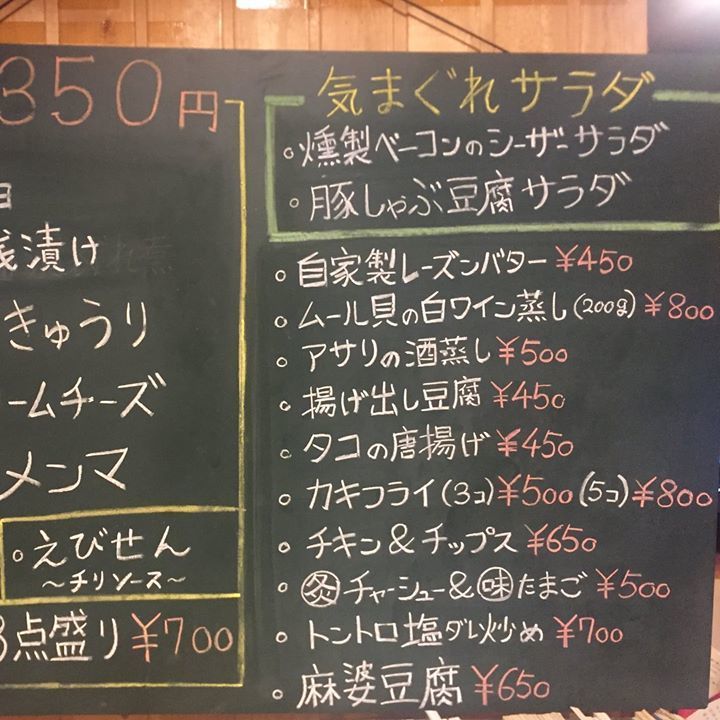 350円
日
浅漬け
きゅうり
ームチーズ
メンマ
◦えびせん
〜チリソース〜
3点盛り ¥700
気まぐれサラダ
◦燻製ベーコンのシーザーサラダ
◦豚しゃぶ豆腐サラダ
◦自家製レーズンバター ¥450
◦ムール貝の白ワイン蒸し(200g) ¥800
◦アサリの酒蒸し ¥500
◦揚げ出し豆腐 ¥450
◦タコの唐揚げ ¥450
◦カキフライ(3コ)¥500 (5コ)¥800
◦チキン&チップス ¥650
◦㊋チャーシュー&味たまご ¥500
◦トントロ塩ダレ炒め ¥700
◦麻婆豆腐 ¥650